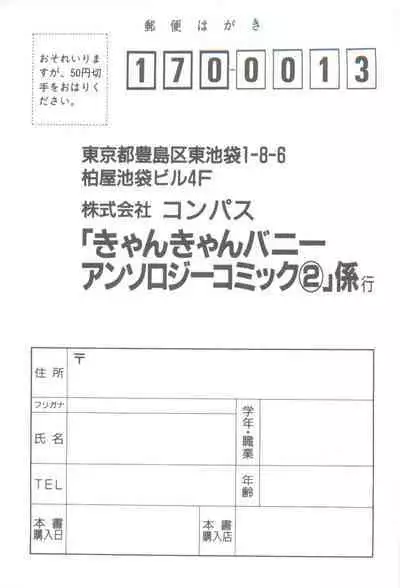 郵便はがき
おそれいりま
すが、50円切
手をおはりく
ださい。
170-0013
東京都豊島区東池袋1-8-6
柏屋池袋ビル4F
株式会社 コンパス
「きゃんきゃんバニー
アンソロジーコミック②」係行
住所
〒
フリガナ
氏名
学年・職業
TEL
年齢
本書
購入日
本書
購入店